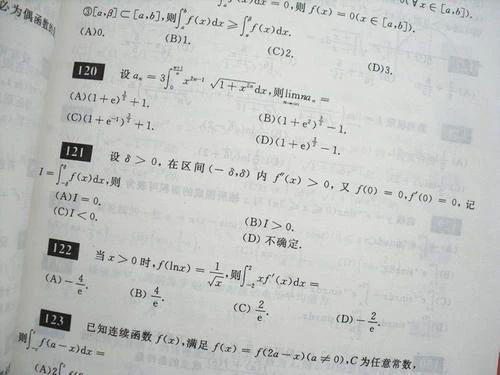 =0,则 f(x)=0(x∈[a,b]).
③[α,β]⊂[a,b],则∫ₐᵇ f(x)dx⩾∫ f(x)dx.
必为偶函数的
(A)0. (B)1. (C)2. (D)3.
120 设 aₙ=3∫₀^((n+1)/n) x²ⁿ⁻¹ √(1+x²ⁿ)dx,则 lim_(n→∞) naₙ=
(A)(1+e)^(3/2)+1. (B)(1+e²)^(3/2)-1.
(C)(1+e⁻¹)^(3/2)+1. (D)(1+e)^(3/2)-1.
121 设 δ>0,在区间(-δ,δ)内 f″(x)>0,又 f(0)=0,f′(0)=0,记
I=∫f(x)dx,则
(A)I=0. (B)I>0.
(C)I<0. (D)不确定.
122 当 x>0 时,f(lnx)=1/√x,则∫₋₂² xf′(x)dx=
(A)-4/e. (B)4/e. (C)2/e. (D)-2/e.
123 已知连续函数 f(x),满足 f(x)=f(2a-x)(a≠0),C 为任意常数,
则∫f(a-x)dx=
(A)2∫